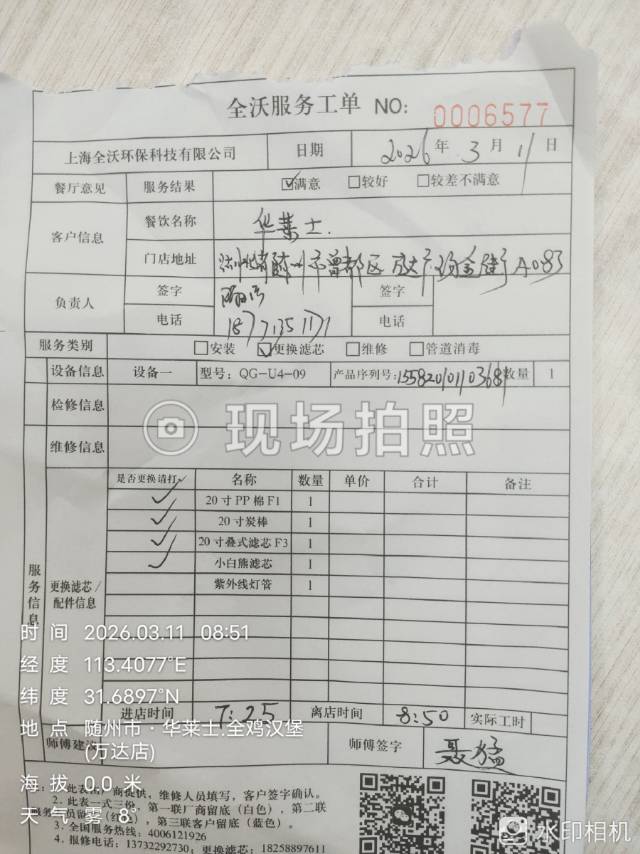 全沃服务工单 NO: 0006577
上海全沃环保科技有限公司 日期 2026年3月11日
餐厅意见 服务结果 ☑满意 □较好 □较差不满意
客户信息 餐饮名称 华莱士.
门店地址 市曾都区 A083
负责人 签字 签字
电话 18771351171 电话
服务类别 □安装 ☑更换滤芯 □维修 □管道消毒
设备信息 设备一 型号: QG-U4-09 产品序列号: 15582010110368 数量 1
检修信息
现场拍照
维修信息
是否更换请打✓ 名称 数量 单价 合计 备注
✓ 20寸PP棉F1 1
✓ 20寸炭棒 1
✓ 20寸叠式滤芯F3 1
✓ 小白熊滤芯 1
紫外线灯管 1
服务信息 更换滤芯/配件信息
时间 2026.03.11 08:51
经度 113.4077°E
纬度 31.6897°N
进店时间 7:25 离店时间 8:50 实际工时
地点 随州市·华莱士.全鸡汉堡
(万达店)
师傅建 师傅签字 聂猛
海拔 0.0 米
天气 雾 8°
1.此表由厂商提供，维修人员填写，客户签字确认。
2.此表一式三份，第一联厂商留底（白色），第二联
员留底（红色），第三联客户留底（蓝色）。
3.全国服务热线: 4006121926
4.报修电话: 13732292730; 更换滤芯: 18258897611
水印相机